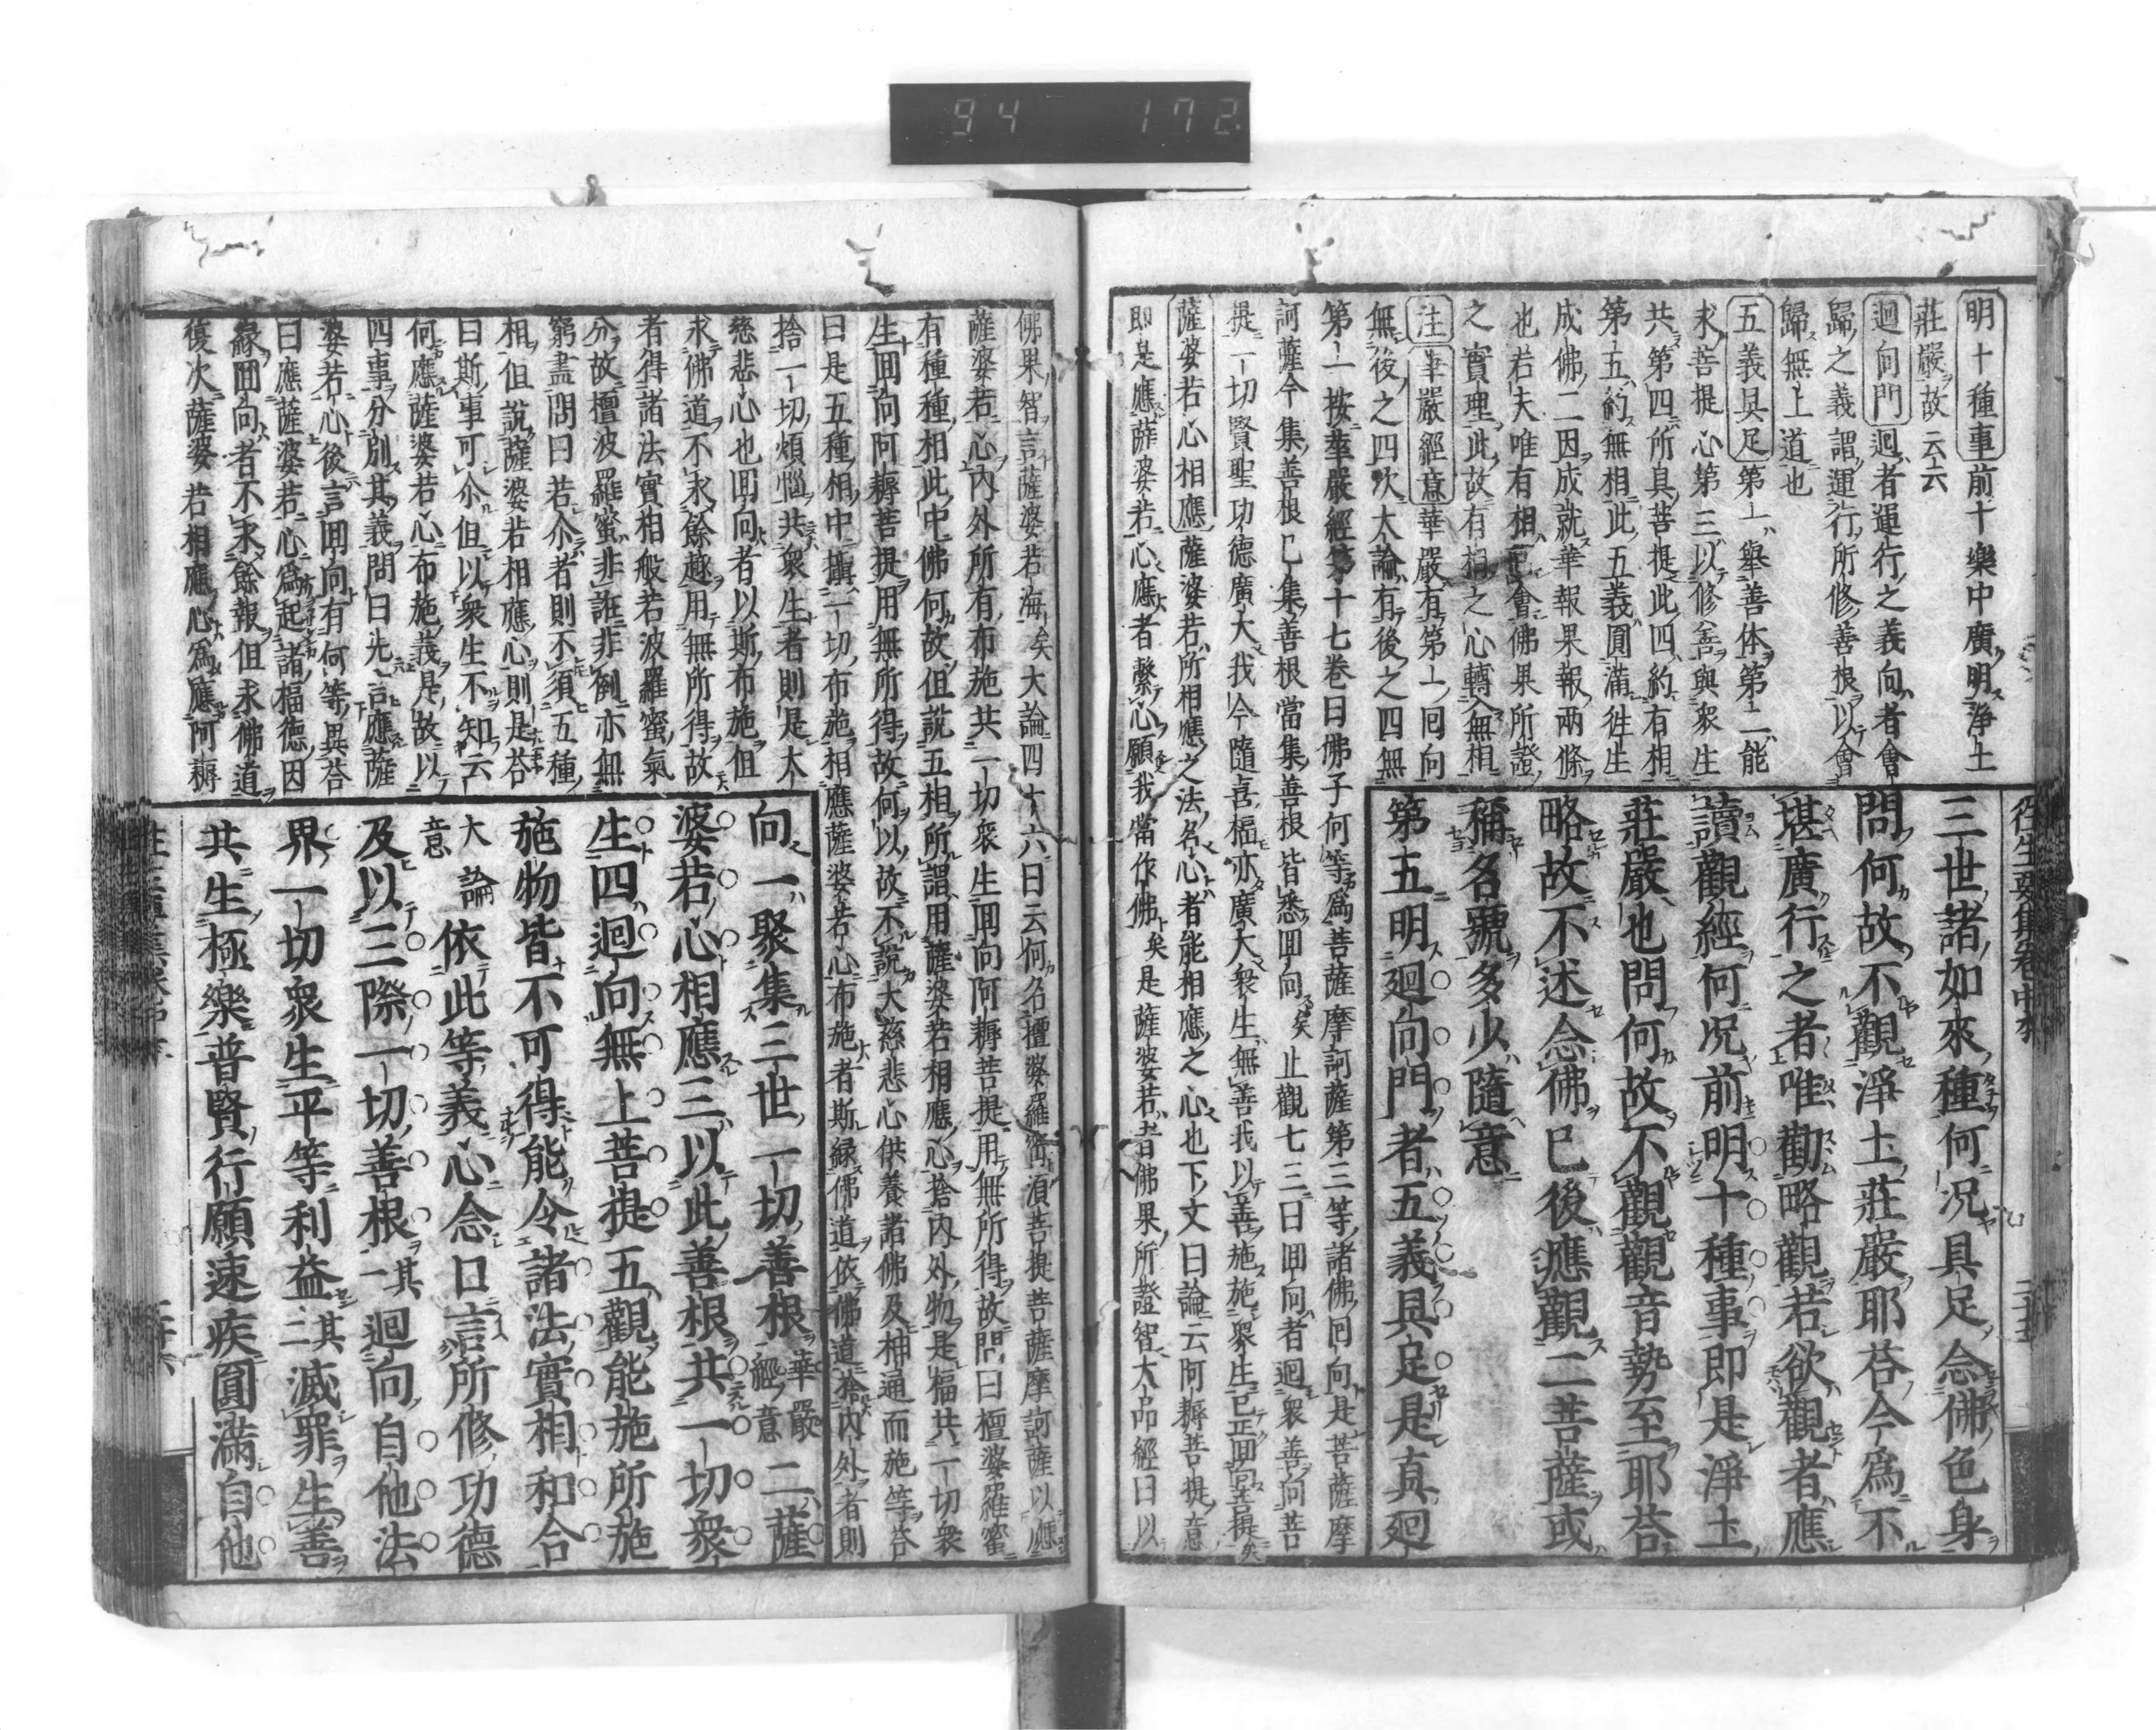 94 172
明十種事前十樂中廣明淨土
莊嚴故云云六
迴向門迴者運行之義向者會
歸之義謂運行所修善根以會
歸無上道也
五義具足第一舉善体第二能
求菩提心第三以修善與衆生
共第四所具菩提此四約有相
第五約無相此五義圓滿徃生
成佛二因成就華報果報兩條
也若夫唯有相會佛果所證
之實理此故有相之心轉入無相
注華嚴經意華嚴有第一回向
無後之四次大論有後之四無
第一按華嚴經第十七卷曰佛子何等爲菩薩摩訶薩第三等諸佛回向是菩薩摩
訶薩今集善根已集善根當集善根皆悉回向矣止觀七三曰回向者迴衆善向菩
提一切賢聖功德廣大我今隨喜福亦廣大衆生無善我以善施施衆生已正回向菩提矣
薩婆若心相應薩婆若所相應之法名心者能相應之心也下文曰論云阿耨菩提意
即是應薩婆若心應者繫心願我當作佛矣是薩婆若者佛果所證智大品經曰以
三世諸如來種何況具足念佛色身
問何故不觀淨土莊嚴耶荅今爲不
堪廣行之者唯勸略觀若欲觀者應
讀觀經何況前明十種事即是淨土
莊嚴也問何故不觀觀音勢至耶荅
略故不述念佛已後應觀二菩薩或
稱名號多少隨意
第五明迴向門者五義具足是真迴
佛果智言薩婆若海矣大論四十六曰云何名檀婆羅蜜湏菩提菩薩摩訶薩以應
薩婆若心內外所有布施共一切衆生回向阿耨菩提用無所得故問曰檀婆羅蜜
有種種相此中佛何故但說五相所謂用薩婆若相應心捨內外物是福共一切衆
生回向阿耨菩提用無所得故何以故不說大慈悲心供養諸佛及神通而施等荅
曰是五種相中攝一切布施相應薩婆若心布施者斯緣佛道依佛道捨內外者則
捨一切煩惱共衆生者則是大
慈悲心也回向者以斯布施但
求佛道不求餘趣用無所得故
者得諸法實相般若波羅蜜氣
分故檀波羅蜜非誑非倒亦無
窮盡問曰若尒者則不須五種
相但說薩婆若相應心則是荅
曰斯事可尒但以衆生不知云
何應薩婆若心布施義是故以
四事分別其義問曰先言應薩
婆若心後言回向有何等異荅
曰應薩婆若心爲起諸福德因
緣回向者不求餘報但求佛道
復次薩婆若相應心爲應阿耨
向一聚集三世一切善根華嚴經意二薩
婆若心相應三以此善根共一切衆
生四迴向無上菩提五觀能施所施
施物皆不可得能令諸法實相和合
大論意依此等義心念口言所修功德
及以三際一切善根其一迴向自他法
界一切衆生平等利益其二滅罪生善
共生極樂普賢行願速疾圓滿自他